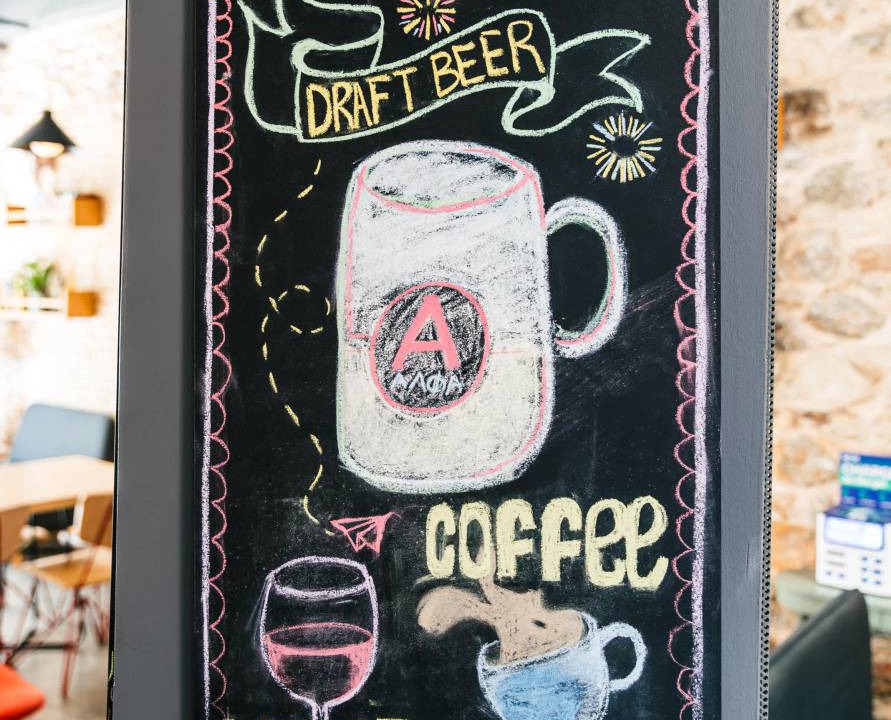 DRAFT BEER
A
ΑΛΦΑ
COFFEE